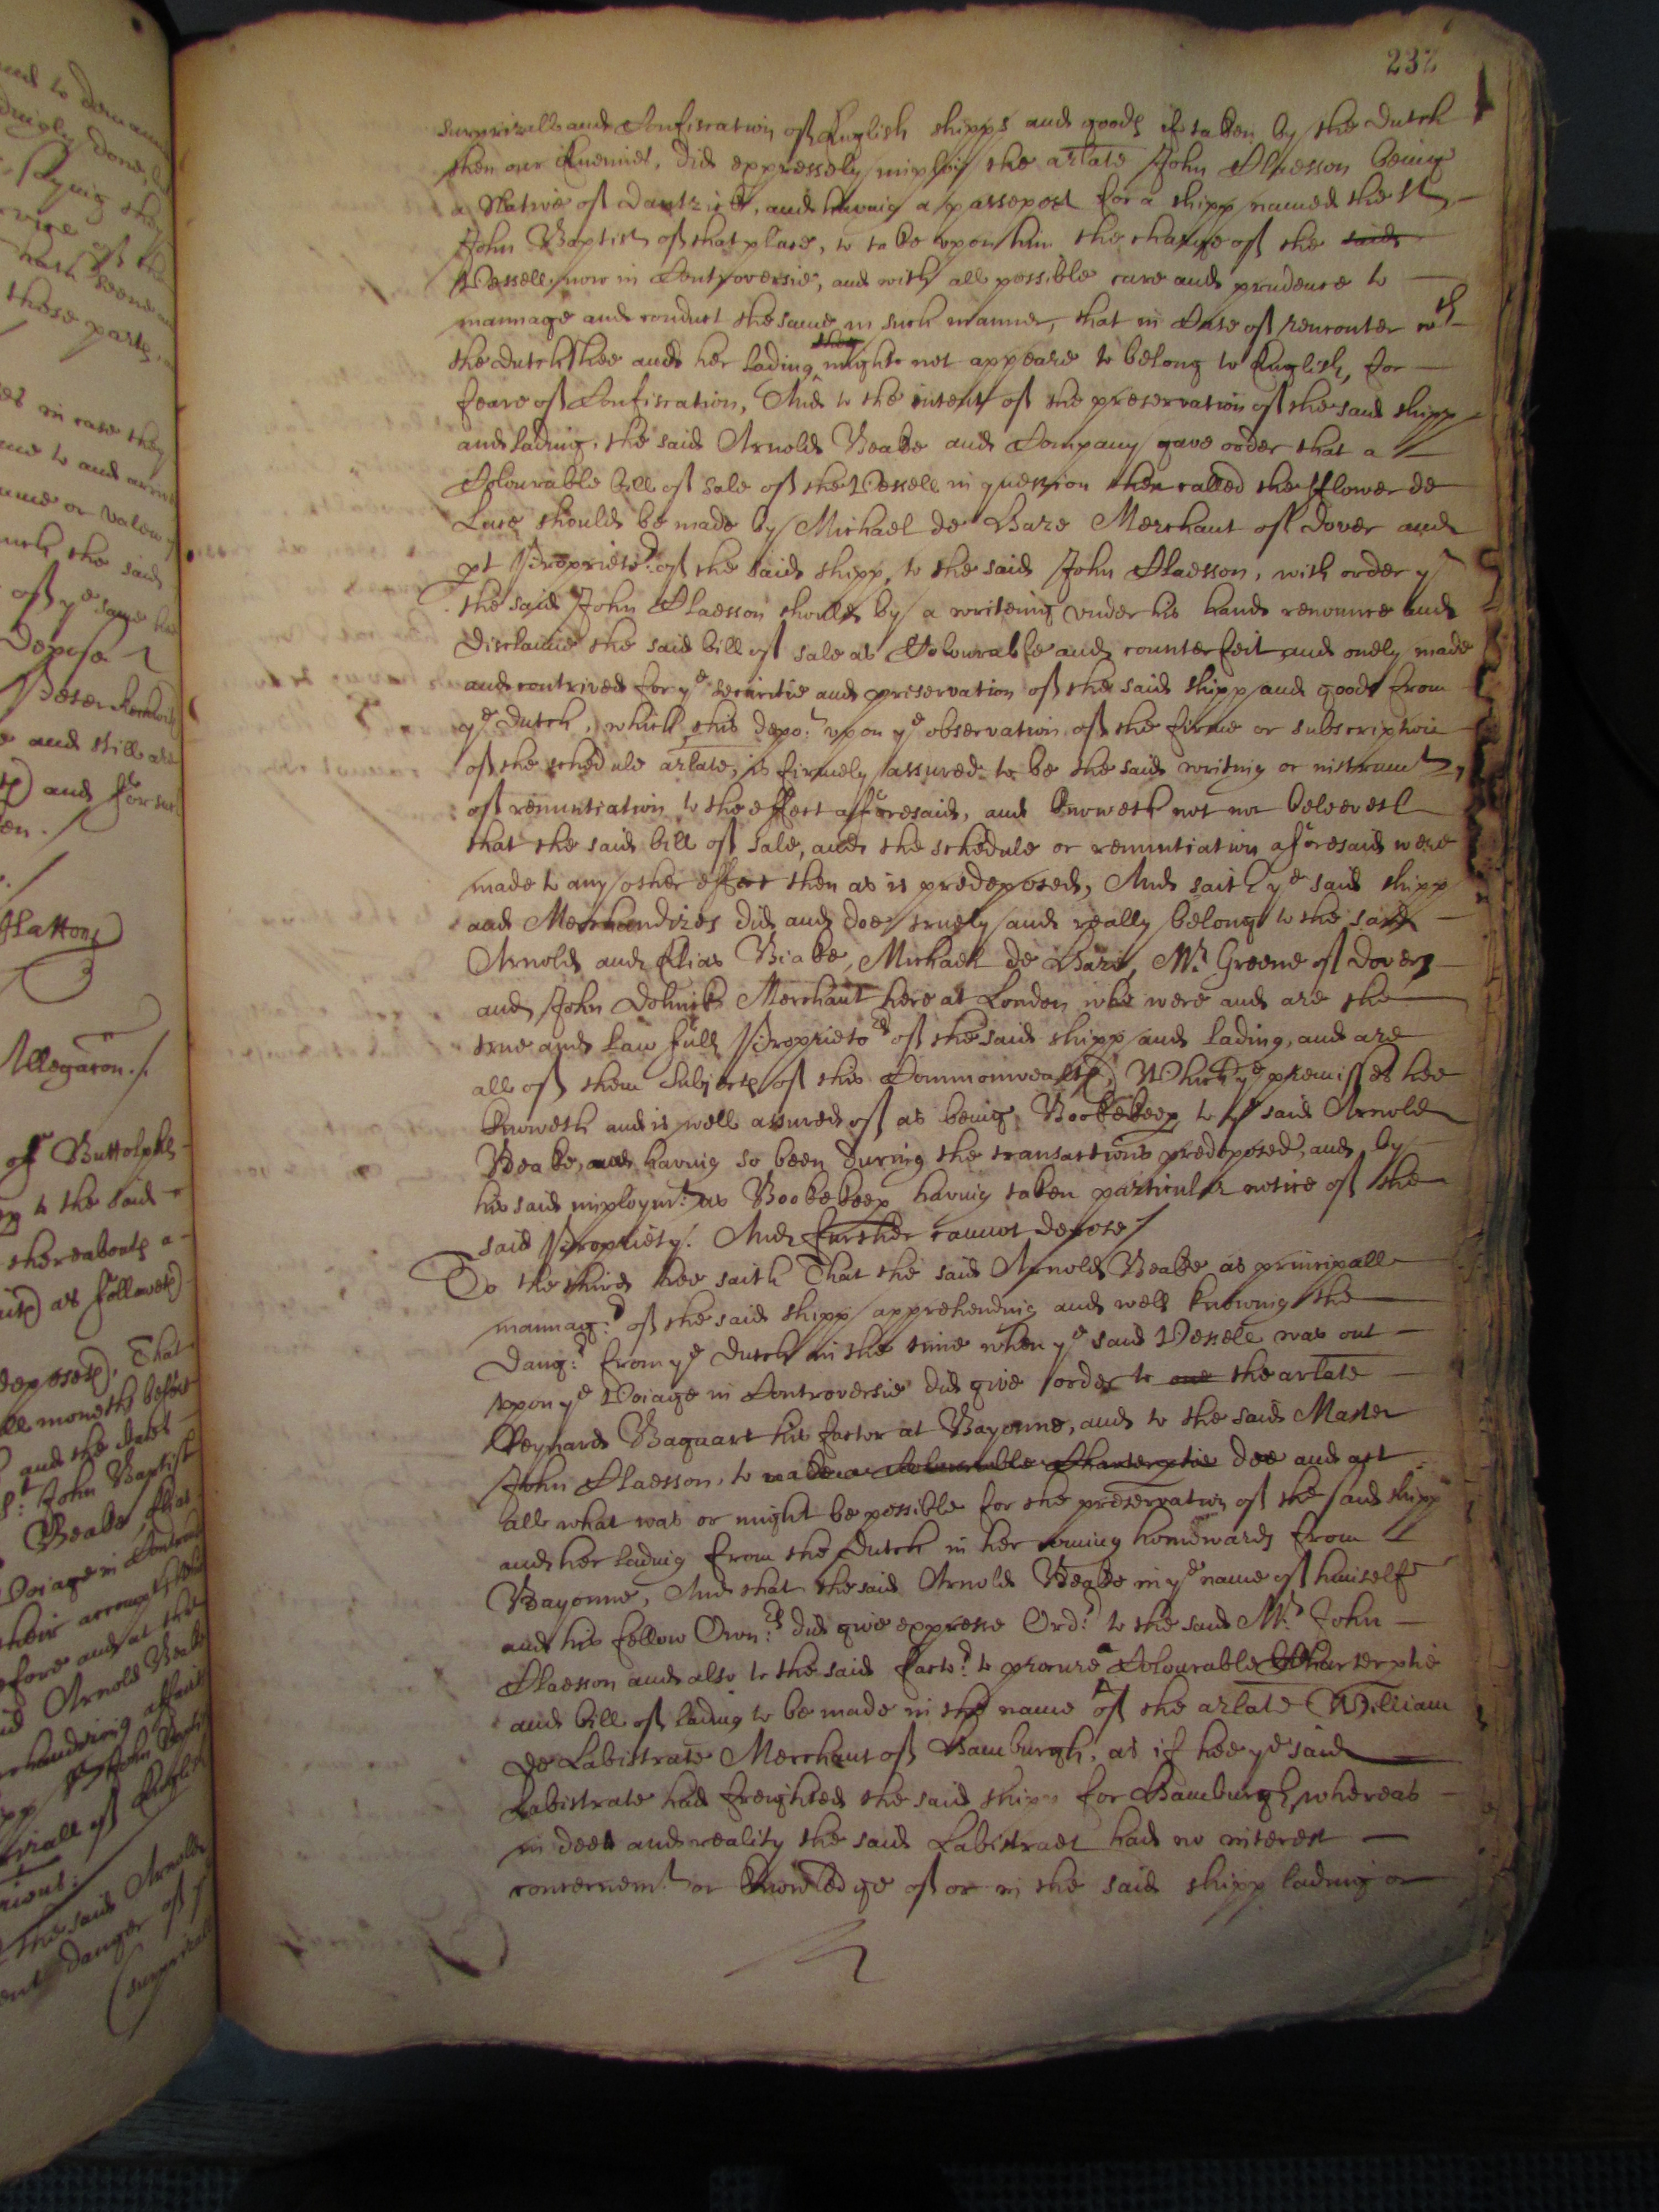 232
surprizall and Confiscation of English shipps and goods if taken by the Dutch
then our Enemies, did expressely imploy the arlate John Claesson being
a Native of Dantzick, and having a passeport for a shipp named the St
John Baptist of that place, to take upon him the charge of the said
Vessell, now in Controversie, and with all possible care and prudence to
mannage and conduct the same in such manner, that in Case of rencounter wth
the Dutch Shee and her lading they might not appeare to belong to English, for
feare of Confiscation, And to the intent of the preservation of the said shipp
and lading, the said Arnold Beake and Company gave order that a
Colourable bill of sale of the Vessell in question then called the fflower de
Luce should be made by Michael de Haze Merchant of Dover and
pt Proprietor of the said shipp, to the said John Claesson, with order yt
the said John Claesson should by a writeing under his hand renounce and
disclaime the said bill of sale as Colourable and counterfeit and onely made
and contrived for ye securitie and preservation of the said shipp and goods from
ye Dutch, which this depot upon ye observation of the firme or subscription
of the schedule arlate, is firmely assured to be the said writing or instrumt
of renuntiation to the effect aforesaid, and knoweth not nor beleeveth
that the said bill of sale, and the schedule or renuntiation aforesaid were
made to any other effect then as is predeposed, And saith ye said shipp
and Merchandizes did and doe truely and really belong to the said
Arnold and Elias Beake, Michaell de Haze, Mr Greene of Dover
and John Dolmick Merchant here at London who were and are the
true and lawfull Proprietors of the said shipp and lading, and are
all of them Subjects of this Commonwealth, Which ye premisses hee
knoweth and is well assured of as being Bookekeep to ye said Arnold
Beake, and having so been during the transactions predeposed, and by
his said imploymt as Bookekeep having taken particular notice of the
said Propriety. And further cannot depose
To the third hee saith That the said Arnold Beake as principall
mannagr of the said shipp apprehending and well knowing the
dangr from ye Dutch in the time when ye said Vessell was out
upon ye Voiage in Controversie did give order to one the arlate
Reynard Baguart his factor at Bayonne, and to the said Master
John Claesson, to make a Colourable Charterptie doe and act
all what was or might be possible for the preservation of the said shipp
and her lading from the Dutch in her coming homewards from
Bayonne, And that the said Arnold Beake in ye name of himself
and his fellow Ownrs did give expresse Ordr to the said Mr John
Claesson and also to the said factor to procure a Colourable Charterptie
and bill of lading to be made in the name of the arlate William
de Labistrate Merchant of Hamburgh, as if hee ye said
Labistrate had freighted the said shipp for Hamburgh, whereas
in deed and reality the said Labistraet had no interest
concernemt or knowledge of or in the said shipp lading or